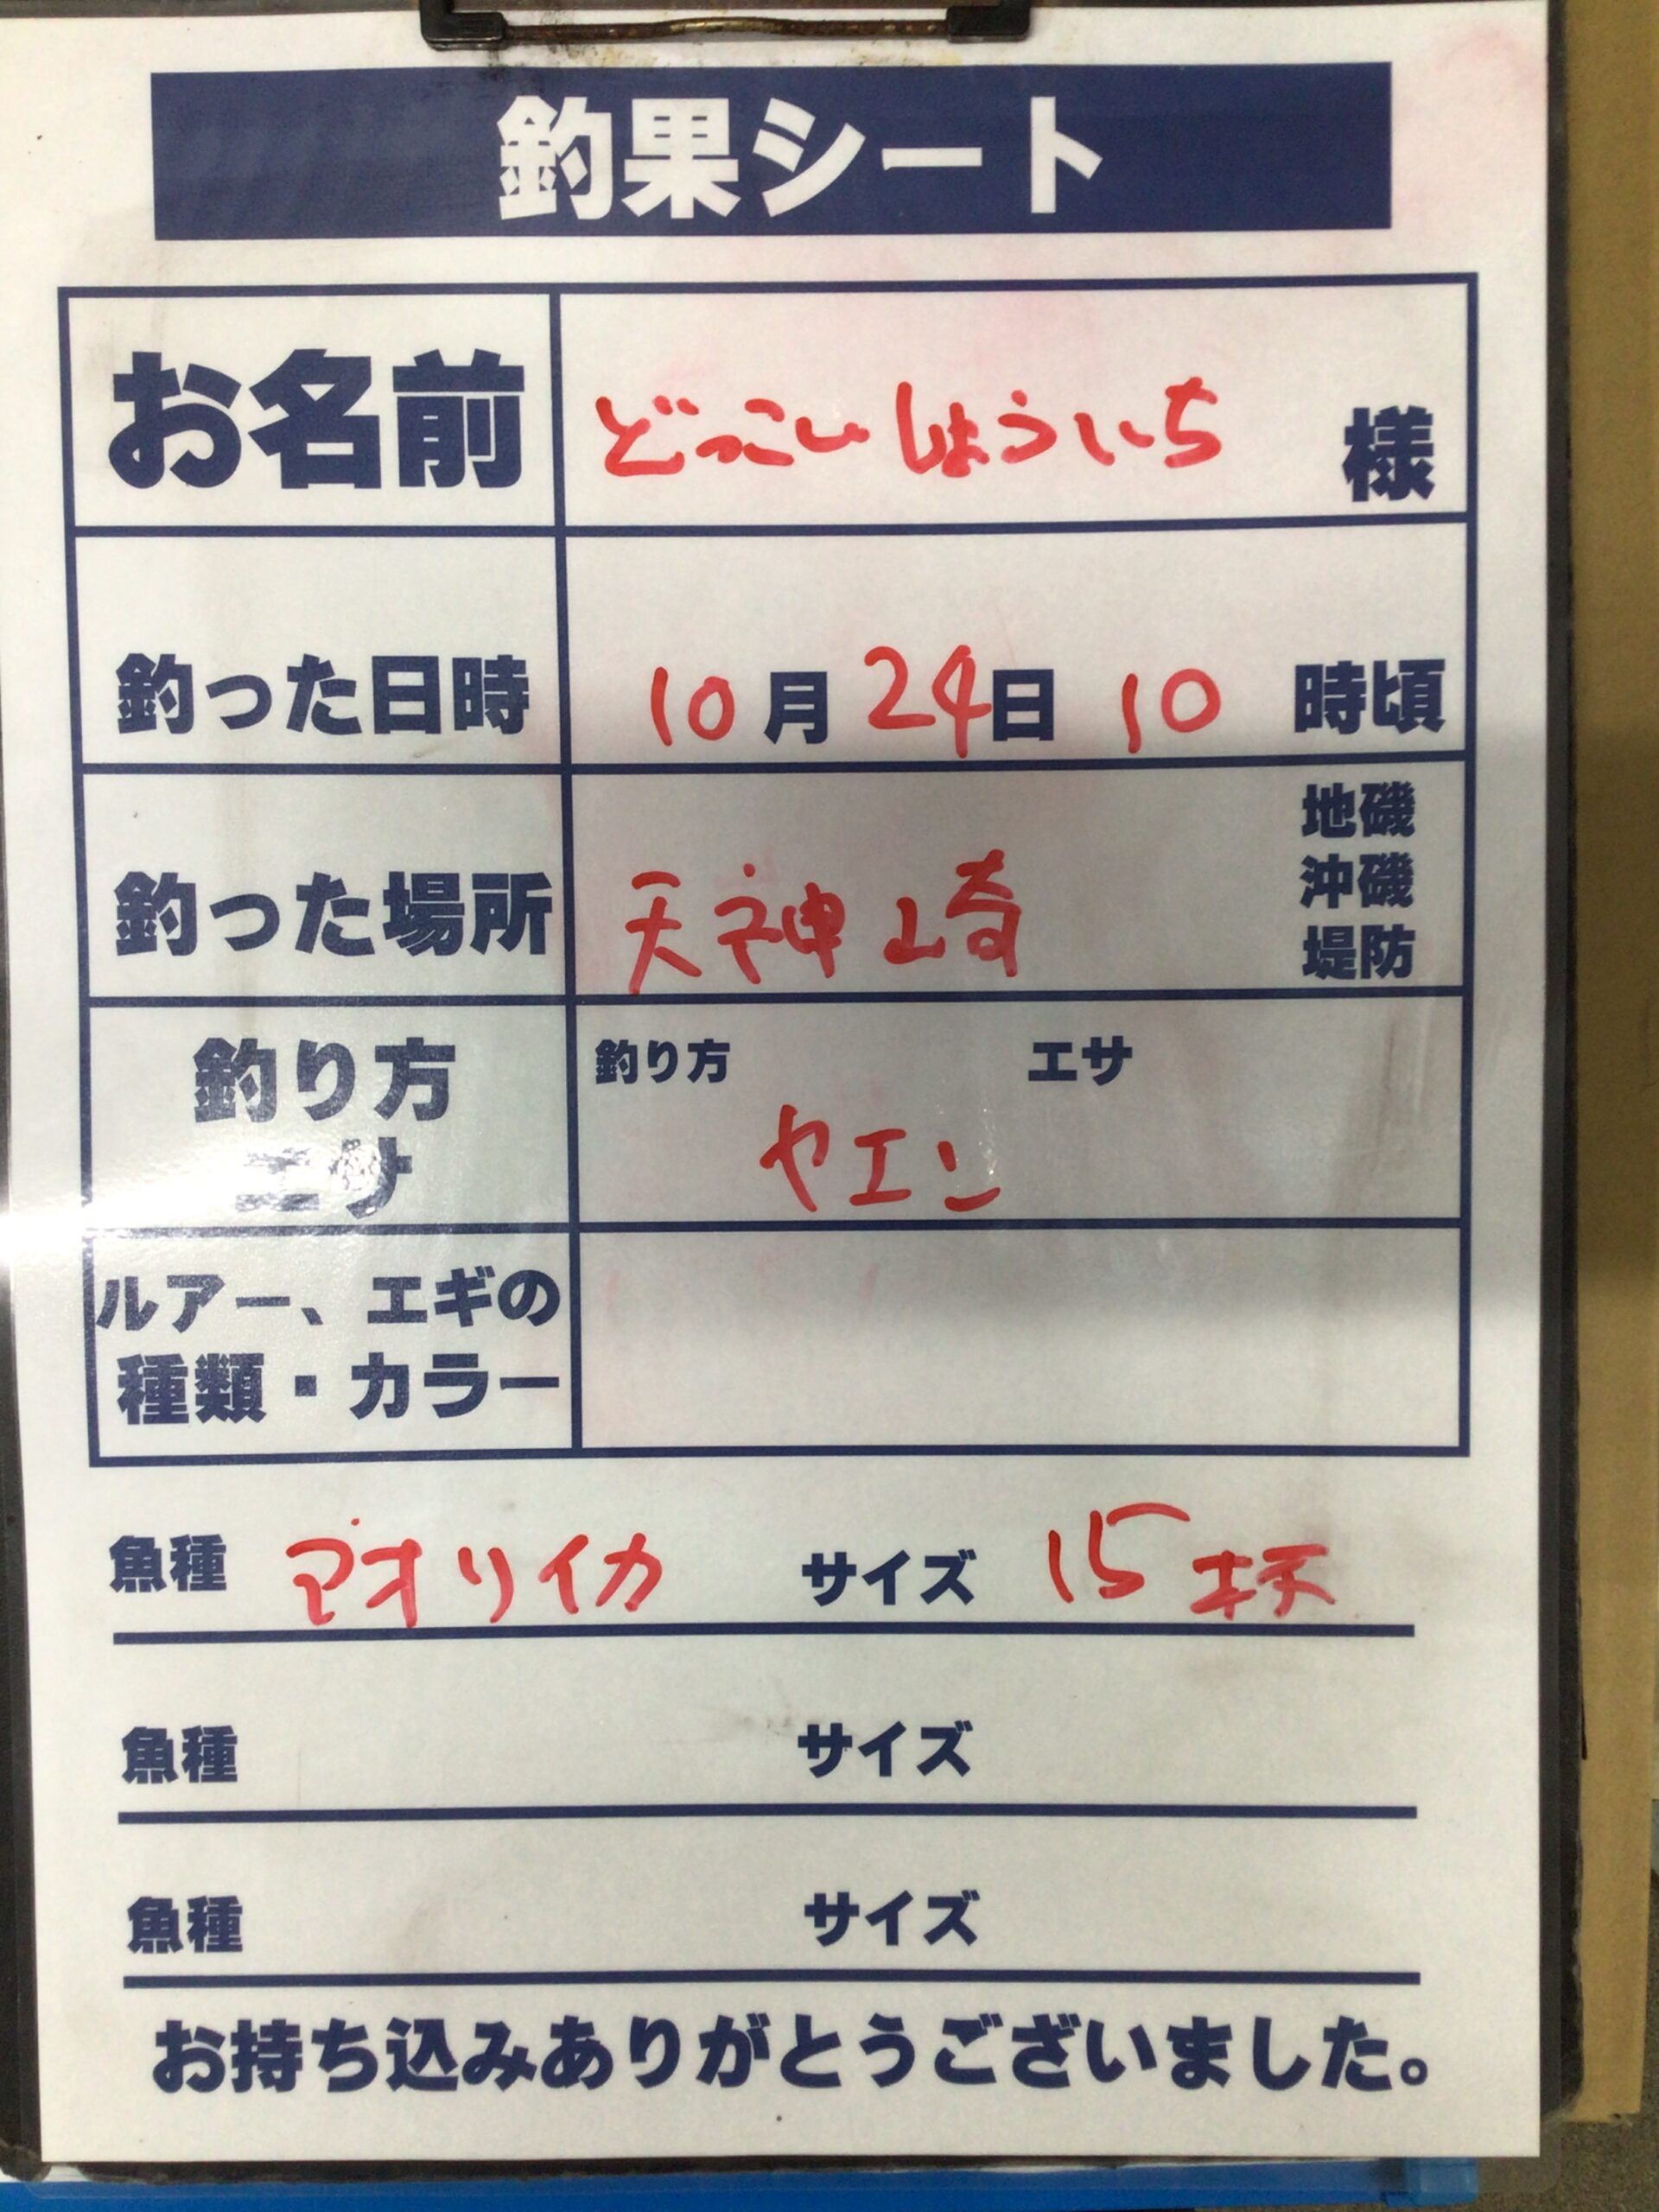 釣果シート
お名前 どっこいしょういち 様
釣った日時 10月24日 10 時頃
地磯
沖磯
釣った場所 天神崎
堤防
釣り方 釣り方 エサ
エサ ヤエン
ルアー、エギの
種類・カラー
魚種 アオリイカ サイズ 15杯
魚種 サイズ
魚種 サイズ
お持ち込みありがとうございました。